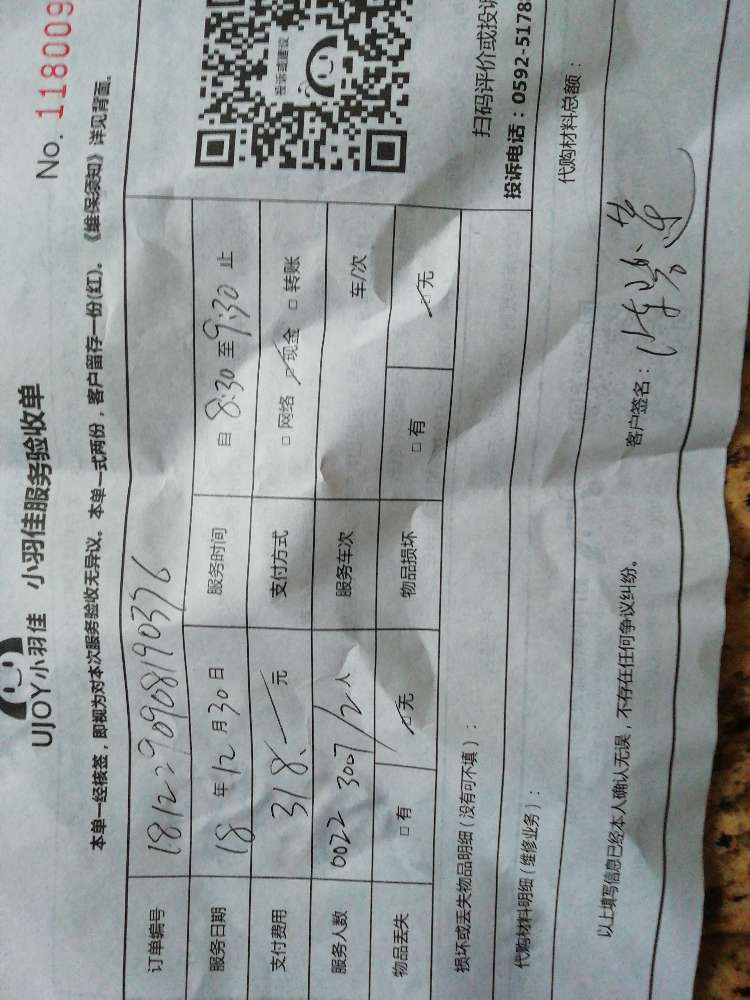 UJOY小羽佳 小羽佳服务验收单
No. 118009
本单一经核签，即视为对本次服务验收无异议。本单一式两份，客户留存一份(红)。《维保须知》详见背面。
订单编号 1812290908190376
服务日期 18 年 12 月 30 日 服务时间 自 8:30 至 9:30 止
支付费用 318.— 元 支付方式 □ 网络 ☑ 现金 □ 转账
服务人数 0022 3007/2人 服务车次 车/次
物品丢失 □ 有 ☑ 无 物品损坏 □ 有 ☑ 无
损坏或丢失物品明细（没有可不填）：
代购材料明细（维修业务）： 代购材料总额：
以上填写信息已经本人确认无误，不存在任何争议纠纷。 客户签名：
投诉或建议
扫码评价或投诉
投诉电话：0592-5178